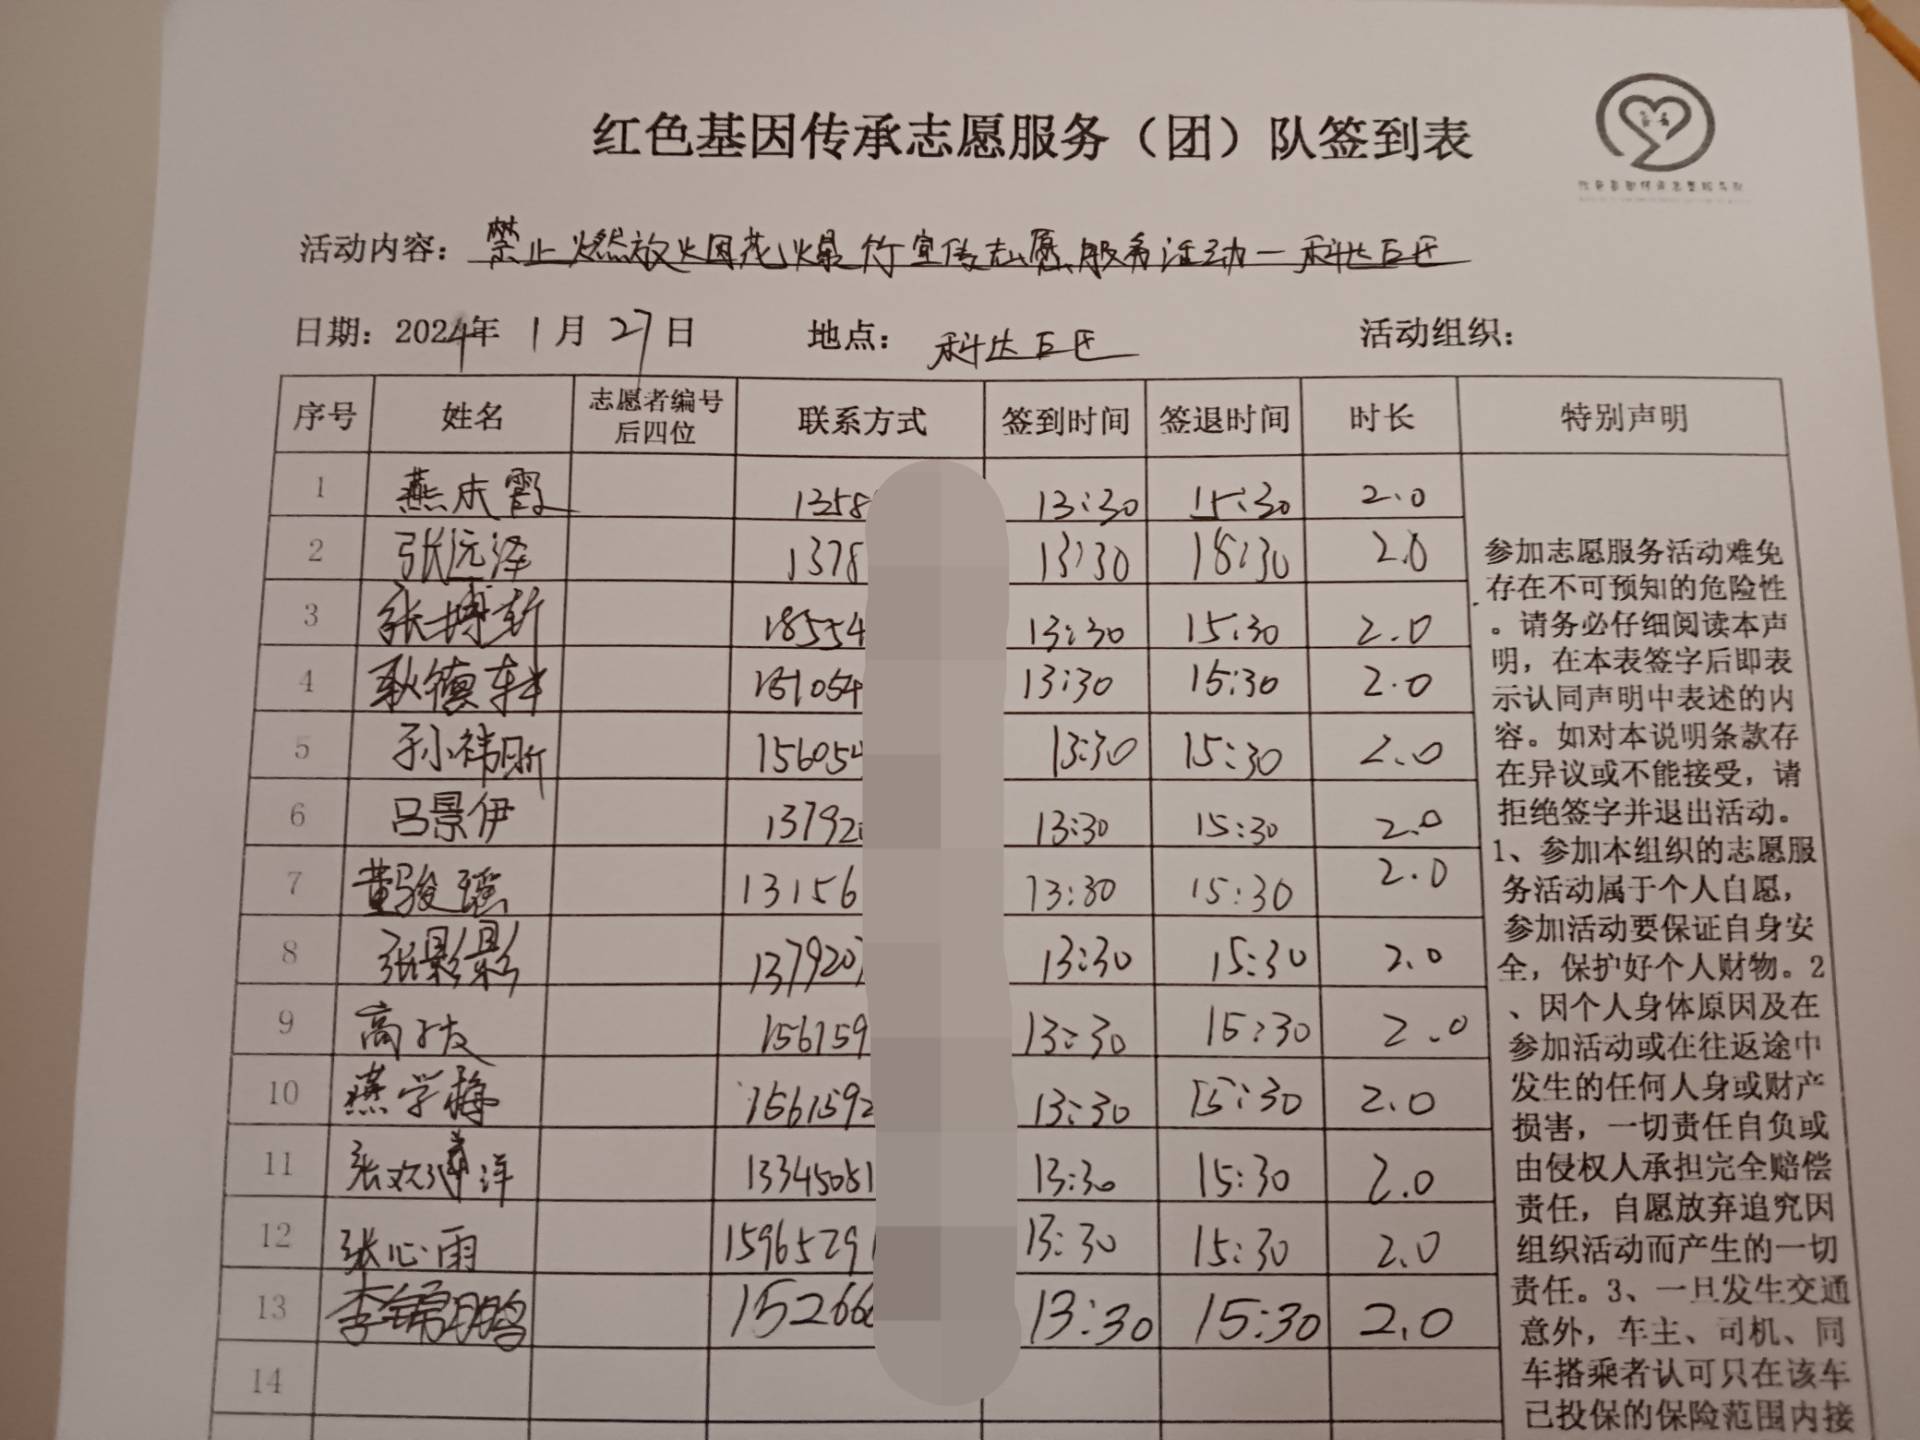 红色基因传承志愿服务（团）队签到表
活动内容：禁止燃放烟花爆竹宣传志愿服务活动—科达巨匠
日期：2024年 1月 27日 地点：科达巨匠 活动组织：
序号 姓名 志愿者编号后四位 联系方式 签到时间 签退时间 时长 特别声明
1 燕成霞 1358 13:30 15:30 2.0
2 张沅泽 1378 13:30 18:30 2.0
3 张博新 18554 13:30 15:30 2.0
4 耿德轩 151054 13:30 15:30 2.0
5 孙祎昕 156054 13:30 15:30 2.0
6 吕景伊 13792 13:30 15:30 2.0
7 董骏瑶 13156 13:30 15:30 2.0
8 张影影 1379207 13:30 15:30 2.0
9 高 156159 13:30 15:30 2.0
10 燕学梅 1561592 13:30 15:30 2.0
11 张 洋 13345081 13:30 15:30 2.0
12 张心雨 1596529 13:30 15:30 2.0
13 李 鹏 15266 13:30 15:30 2.0
14
参加志愿服务活动难免
存在不可预知的危险性
。请务必仔细阅读本声
明，在本表签字后即表
示认同声明中表述的内
容。如对本说明条款存
在异议或不能接受，请
拒绝签字并退出活动。
1、参加本组织的志愿服
务活动属于个人自愿，
参加活动要保证自身安
全，保护好个人财物。2
、因个人身体原因及在
参加活动或在往返途中
发生的任何人身或财产
损害，一切责任自负或
由侵权人承担完全赔偿
责任，自愿放弃追究因
组织活动而产生的一切
责任。3、一旦发生交通
意外，车主、司机、同
车搭乘者认可只在该车
已投保的保险范围内接